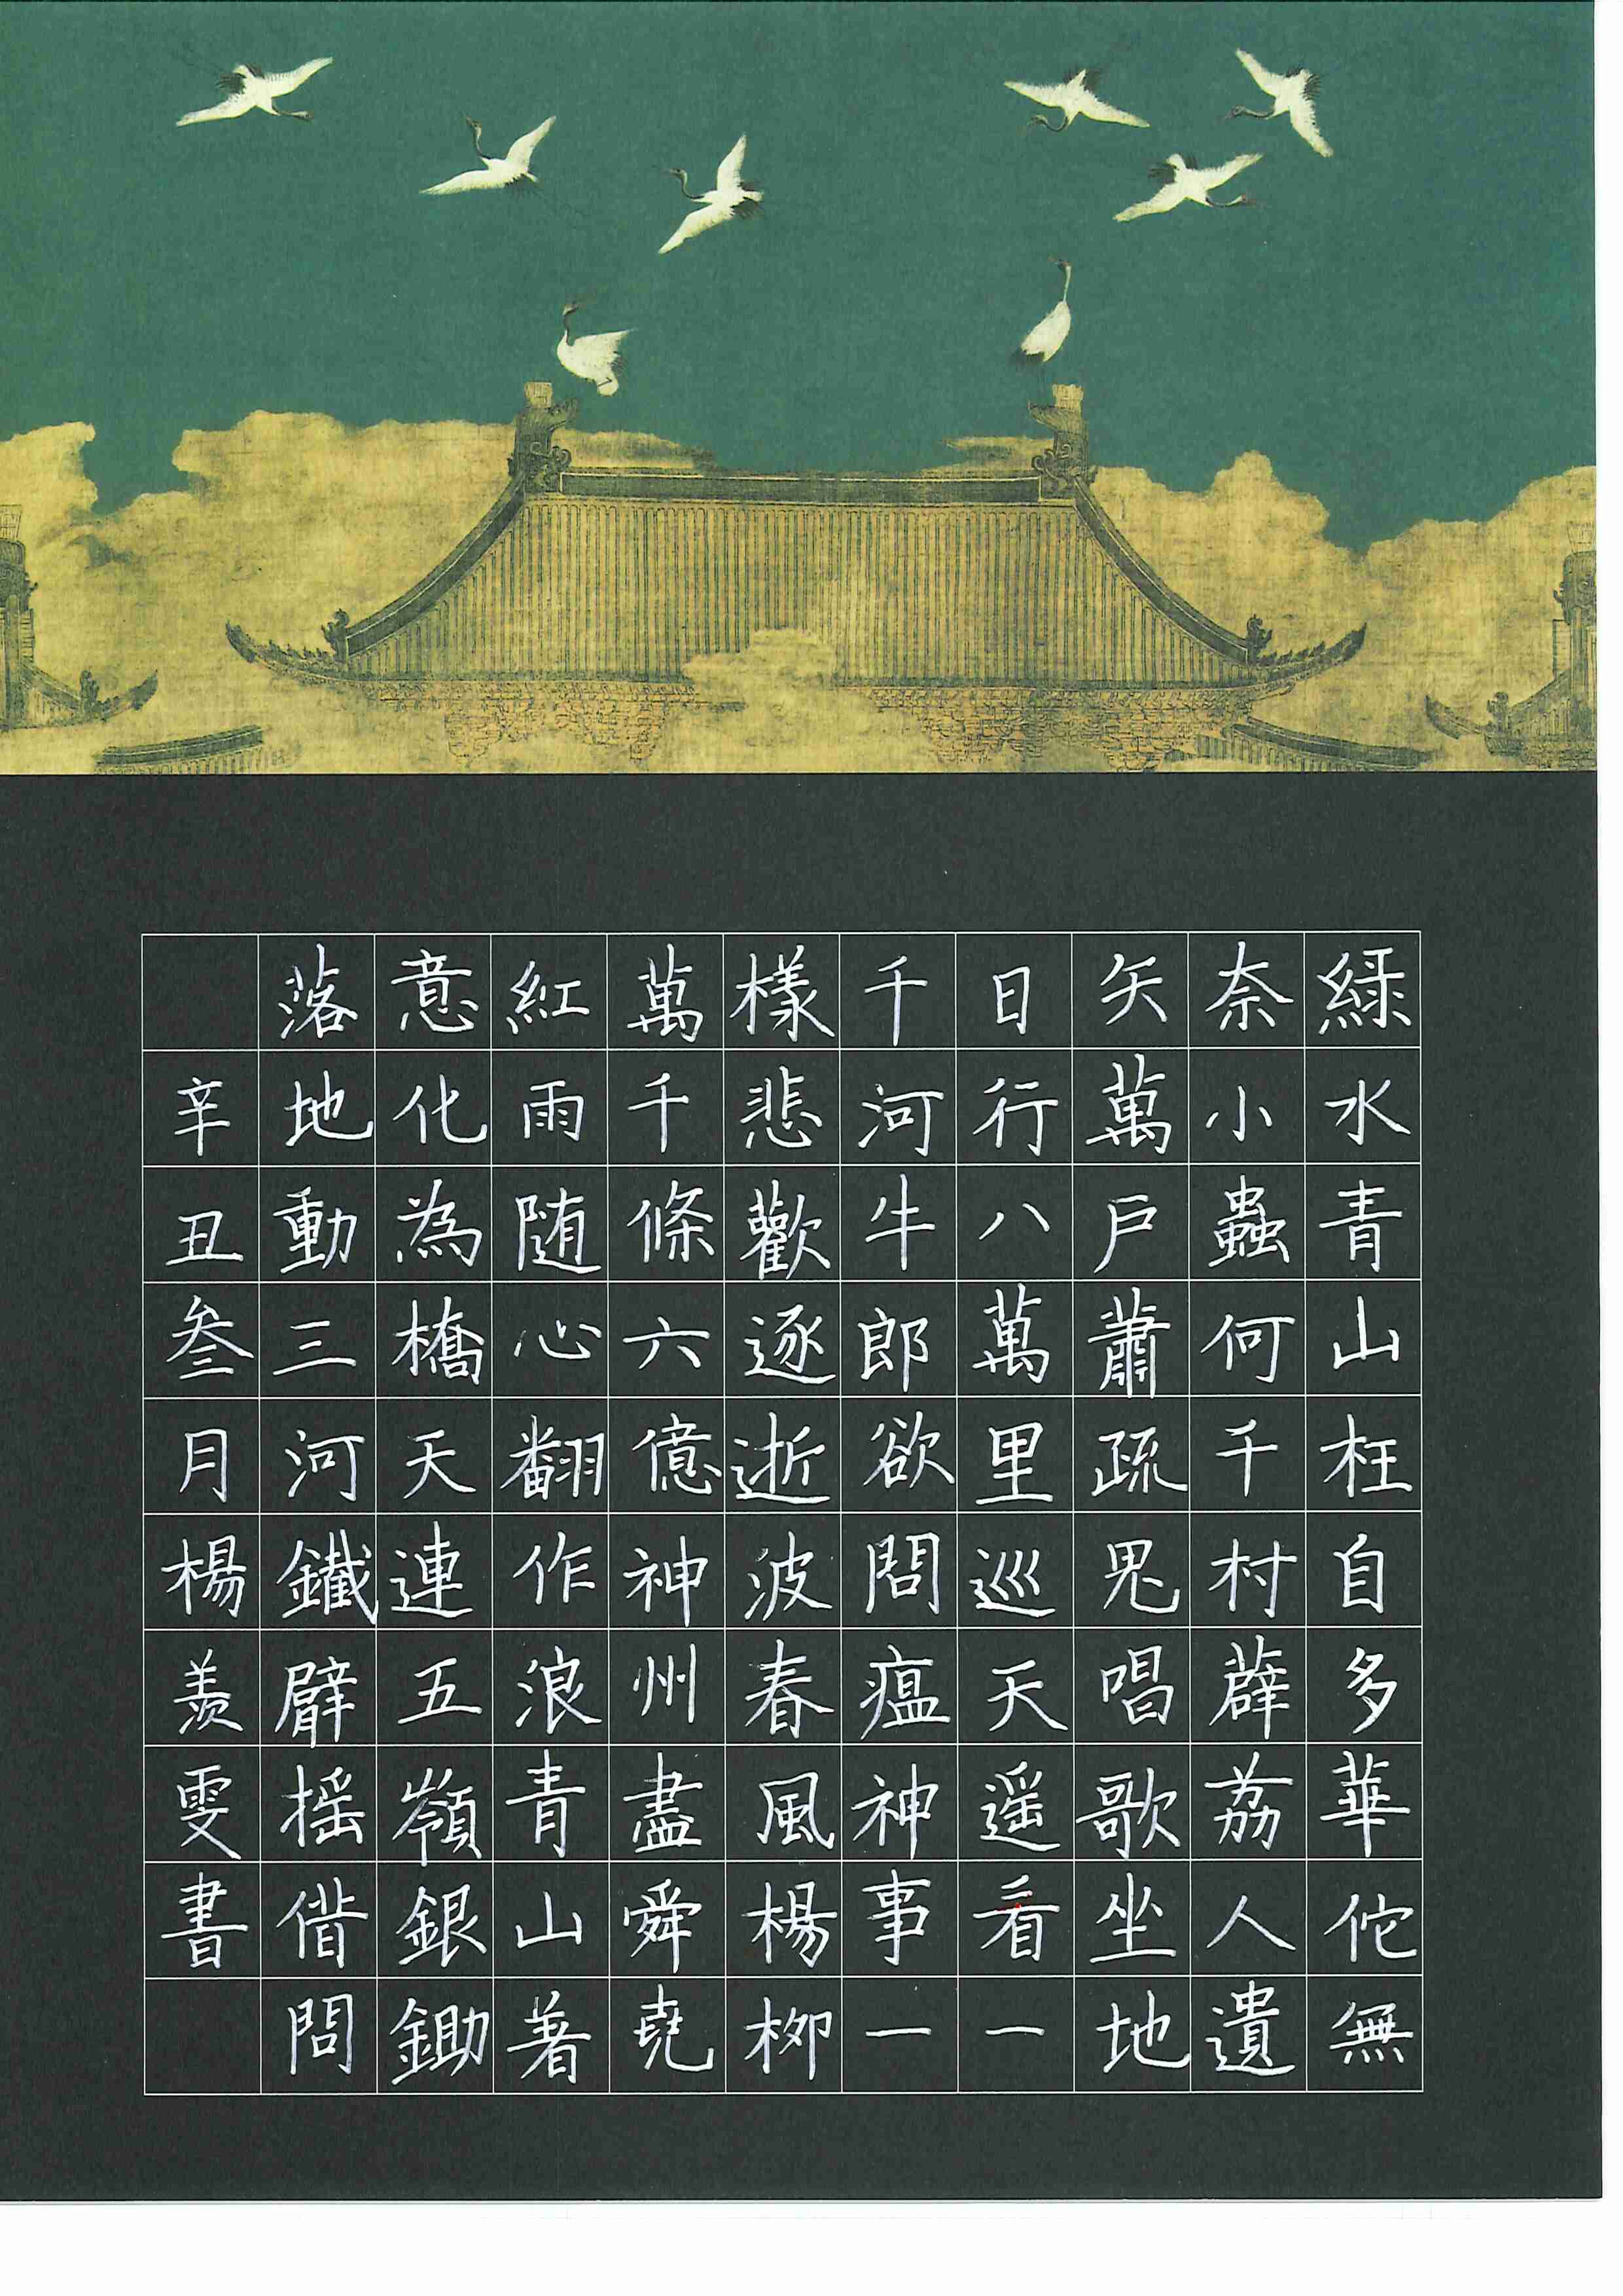 綠水青山枉自多華佗無
奈小蟲何千村薜荔人遺
矢萬戶蕭疏鬼唱歌坐地
日行八萬里巡天遥看一
千河牛郎欲問瘟神事一
樣悲歡逐逝波春風楊柳
萬千條六億神州盡舜堯
紅雨随心翻作浪青山著
意化為橋天連五嶺銀鋤
落地動三河鐵臂摇借問
辛丑叁月楊羨雯書